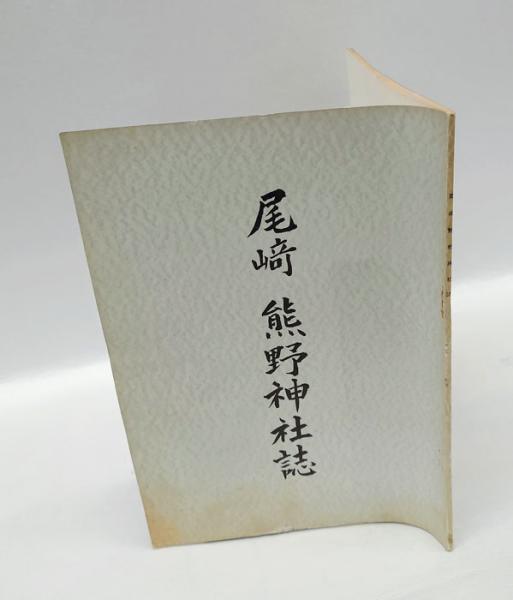 尾﨑 熊野神社誌